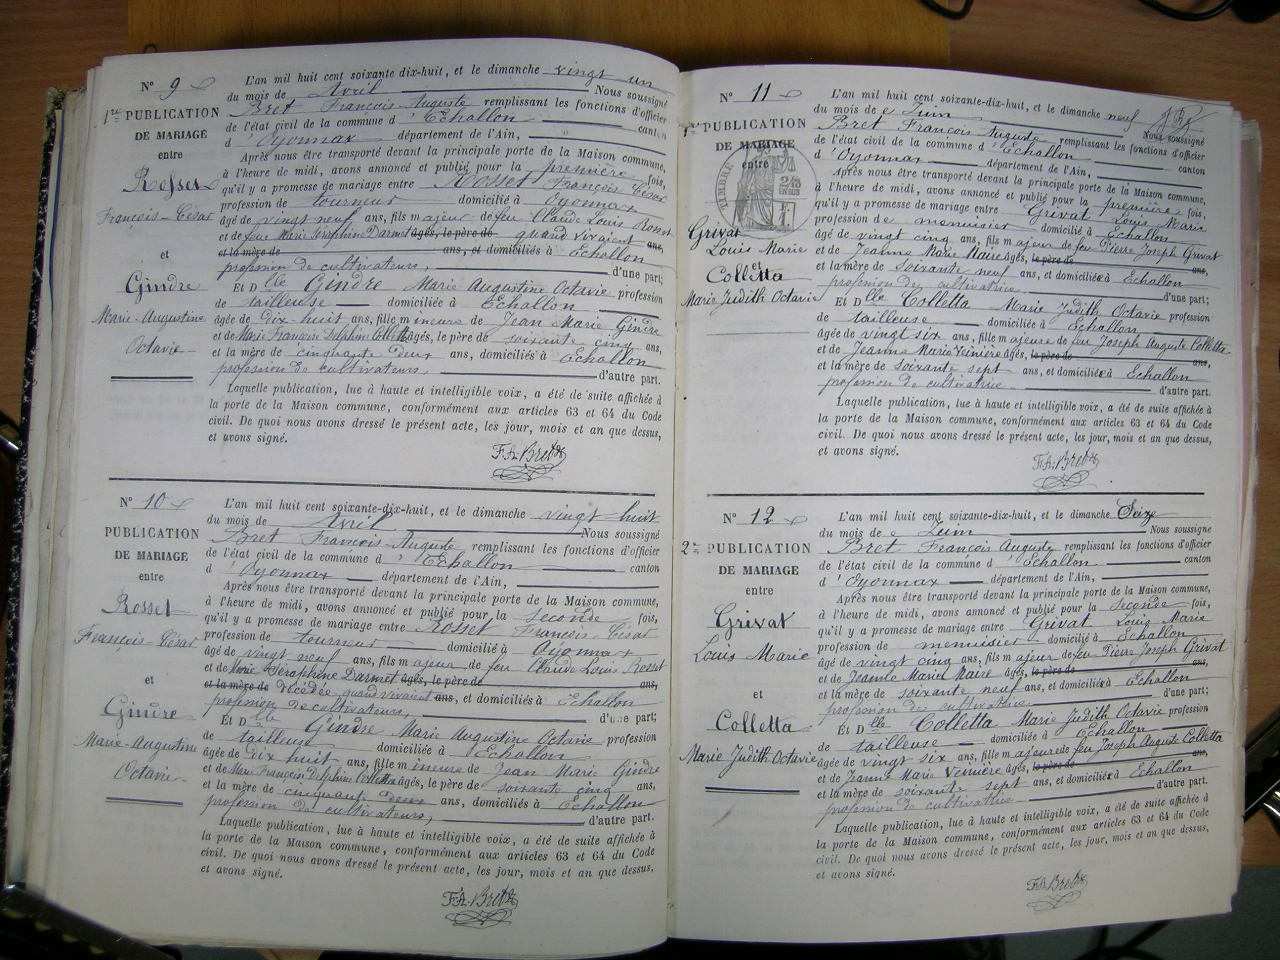 N° 9
1re PUBLICATION
DE MARIAGE
entre
Rosset
François-César
et
Gindre
Marie-Augustine
Octavie
L'an mil huit cent soixante dix-huit, et le dimanche vingt un
du mois de Avril Nous soussigné
Bret François Auguste remplissant les fonctions d'officier
de l'état civil de la commune d'Echallon canton
d'Oyonnax département de l'Ain,
Après nous être transporté devant la principale porte de la Maison commune,
à l'heure de midi, avons annoncé et publié pour la première fois,
qu'il y a promesse de mariage entre Rosset François César
profession de tourneur domicilié à Oyonnax
âgé de vingt neuf ans, fils majeur de feu Claude Louis Rosset
et de feue Marie Séraphine Darmet âgés, le père de quand vivaient ans,
et la mère de ans, et domiciliés à Echallon
profession de cultivateurs, d'une part;
Et Dlle Gindre Marie Augustine Octavie profession
de tailleuse domiciliée à Echallon
âgée de dix huit ans, fille mineure de Jean Marie Gindre
et de Marie Françoise Delphine Colletta âgés, le père de soixante cinq ans,
et la mère de cinquante deux ans, domiciliés à Echallon
profession de cultivateurs, d'autre part.
Laquelle publication, lue à haute et intelligible voix, a été de suite affichée à
la porte de la Maison commune, conformément aux articles 63 et 64 du Code
civil. De quoi nous avons dressé le présent acte, les jour, mois et an que dessus,
et avons signé.
F.A. Bret
N° 10
PUBLICATION
DE MARIAGE
entre
Rosset
François-César
et
Gindre
Marie-Augustine
Octavie
L'an mil huit cent soixante-dix-huit, et le dimanche vingt huit
du mois de Avril Nous soussigné
Bret François Auguste remplissant les fonctions d'officier
de l'état civil de la commune d'Echallon canton
d'Oyonnax département de l'Ain,
Après nous être transporté devant la principale porte de la Maison commune,
à l'heure de midi, avons annoncé et publié pour la seconde fois,
qu'il y a promesse de mariage entre Rosset François-César
profession de tourneur domicilié à Oyonnax
âgé de vingt neuf ans, fils majeur de feu Claude Louis Rosset
et de Marie Séraphine Darmet âgés, le père de ans,
et la mère de décédée quand vivaient ans, et domiciliés à Echallon
profession de cultivateurs, d'une part;
Et Dlle Gindre Marie Augustine Octavie profession
de tailleuse domiciliée à Echallon
âgée de dix huit ans, fille mineure de Jean Marie Gindre
et de Marie Françoise Delphine Colletta âgés, le père de soixante cinq ans,
et la mère de cinquante deux ans, domiciliés à Echallon
profession de cultivateurs, d'autre part.
Laquelle publication, lue à haute et intelligible voix, a été de suite affichée à
la porte de la Maison commune, conformément aux articles 63 et 64 du Code
civil. De quoi nous avons dressé le présent acte, les jour, mois et an que dessus,
et avons signé.
F.A. Bret
N° 11
1re PUBLICATION
DE MARIAGE
entre
TIMBRE
Grivat
Louis Marie
et
Colletta
Marie Judith Octavie
L'an mil huit cent soixante-dix-huit, et le dimanche neuf
du mois de Juin Nous soussigné
Bret François Auguste remplissant les fonctions d'officier
de l'état civil de la commune d'Echallon canton
d'Oyonnax département de l'Ain,
Après nous être transporté devant la principale porte de la Maison commune,
à l'heure de midi, avons annoncé et publié pour la première fois,
qu'il y a promesse de mariage entre Grivat Louis Marie
profession de menuisier domicilié à Echallon
âgé de vingt cinq ans, fils majeur de feu Pierre Joseph Grivat
et de Jeanne Marie Maire âgés, le père de ans,
et la mère de soixante neuf ans, et domiciliée à Echallon
profession de cultivatrice d'une part;
Et Dlle Colletta Marie Judith Octavie profession
de tailleuse domiciliée à Echallon
âgée de vingt six ans, fille majeure de feu Joseph Auguste Colletta
et de Jeanne Marie Veinière âgés, le père de ans,
et la mère de soixante sept ans, et domiciliée à Echallon
profession de cultivatrice d'autre part.
Laquelle publication, lue à haute et intelligible voix, a été de suite affichée à
la porte de la Maison commune, conformément aux articles 63 et 64 du Code
civil. De quoi nous avons dressé le présent acte, les jour, mois et an que dessus,
et avons signé.
F.A. Bret
N° 12
2me PUBLICATION
DE MARIAGE
entre
Grivat
Louis Marie
et
Colletta
Marie Judith Octavie
L'an mil huit cent soixante-dix-huit, et le dimanche Seize
du mois de Juin Nous soussigné
Bret François Auguste remplissant les fonctions d'officier
de l'état civil de la commune d'Echallon canton
d'Oyonnax département de l'Ain,
Après nous être transporté devant la principale porte de la Maison commune,
à l'heure de midi, avons annoncé et publié pour la seconde fois,
qu'il y a promesse de mariage entre Grivat Louis Marie
profession de menuisier domicilié à Echallon
âgé de vingt cinq ans, fils majeur de feu Pierre Joseph Grivat
et de Jeanne Marie Maire âgés, le père de ans,
et la mère de soixante neuf ans, et domiciliée à Echallon
profession de cultivatrice d'une part;
Et Dlle Colletta Marie Judith Octavie profession
de tailleuse domiciliée à Echallon
âgée de vingt six ans, fille majeure de feu Joseph Auguste Colletta
et de Jeanne Marie Vernière âgés, le père de ans,
et la mère de soixante sept ans, et domiciliée à Echallon
profession de cultivatrice d'autre part.
Laquelle publication, lue à haute et intelligible voix, a été de suite affichée à
la porte de la Maison commune, conformément aux articles 63 et 64 du Code
civil. De quoi nous avons dressé le présent acte, les jour, mois et an que dessus,
et avons signé.
F.A. Bret